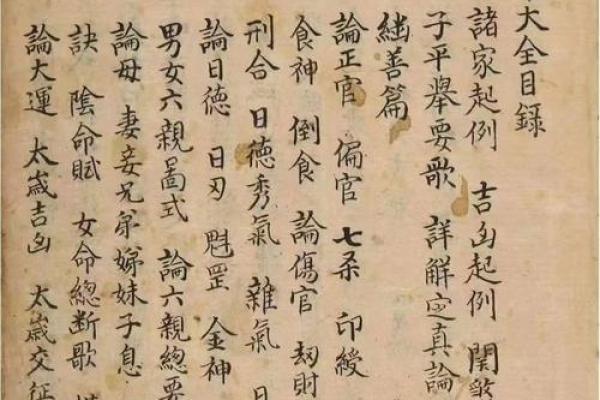 大全目録
諸家起例 吉凶起例 関煞
子平舉要歌 詳解定真論
継善篇
論正官 偏官 七杀 印綬
食神 倒食 論傷官 刼財
刑合 日德秀氣 雜氣 日
論日德 日刃 魁罡 金神
男女六親啚式 論六親總要
論母 妻妾兄弟娣妹子息
訣 陰命賦 女命總断歌
論大運 太歲吉凶 太歲交征